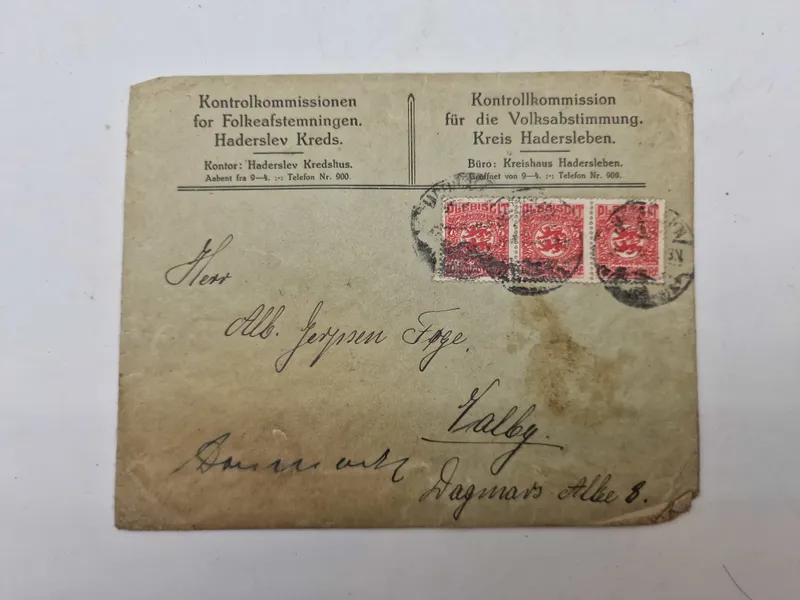 Kontrolkommissionen
for Folkeafstemningen.
Haderslev Kreds.
Kontor: Haderslev Kredshus.
Aabent fra 9—4. :-: Telefon Nr. 900.
Kontrollkommission
für die Volksabstimmung.
Kreis Hadersleben.
Büro: Kreishaus Hadersleben.
Geöffnet von 9—4. :-: Telefon Nr. 900.
PLEBISCIT PLEBISCIT PLEBISCIT
Herr
Alb. Jerpsen Foge.
Valby.
Danmark
Dagmars Alle 8.